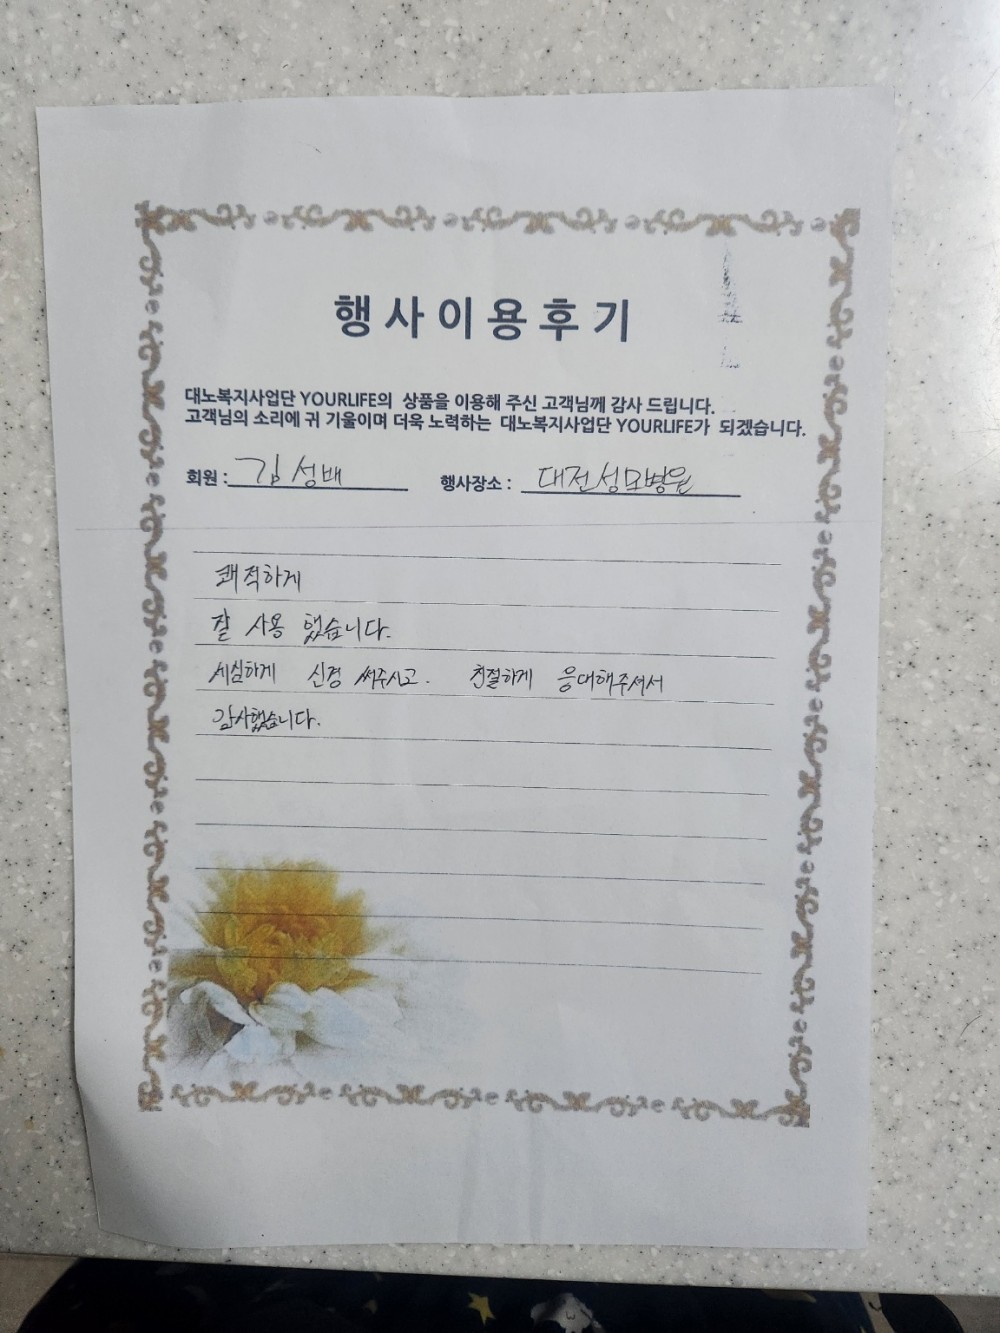 행사이용후기
대노복지사업단 YOURLIFE의 상품을 이용해 주신 고객님께 감사 드립니다.
고객님의 소리에 귀 기울이며 더욱 노력하는 대노복지사업단 YOURLIFE가 되겠습니다.
회원 : 김성배 행사장소 : 대전성모병원
쾌적하게
잘 사용 했습니다.
세심하게 신경 써주시고. 친절하게 응대해주셔서
감사했습니다.